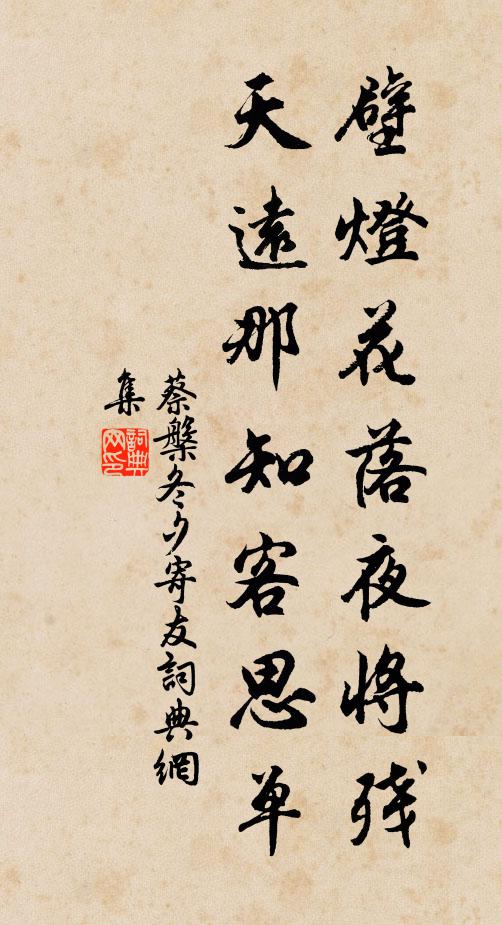 壁燈花落夜將殘
天遠那知客思單
蔡槃冬夕寄友詞典網
集
詞典網印